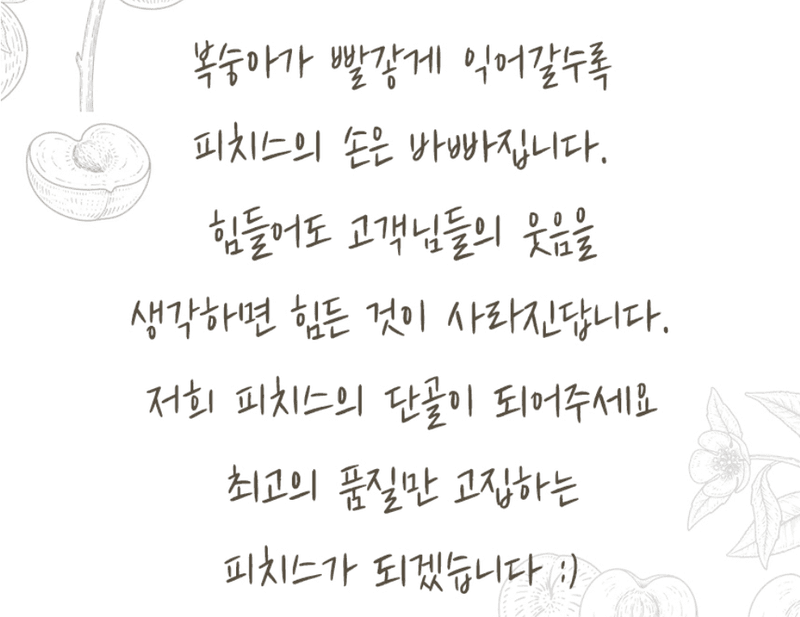 복숭아가 빨갛게 익어갈수록
피치스의 손은 바빠집니다.
힘들어도 고객님들의 웃음을
생각하면 힘든 것이 사라진답니다.
저희 피치스의 단골이 되어주세요
최고의 품질만 고집하는
피치스가 되겠습니다 :)